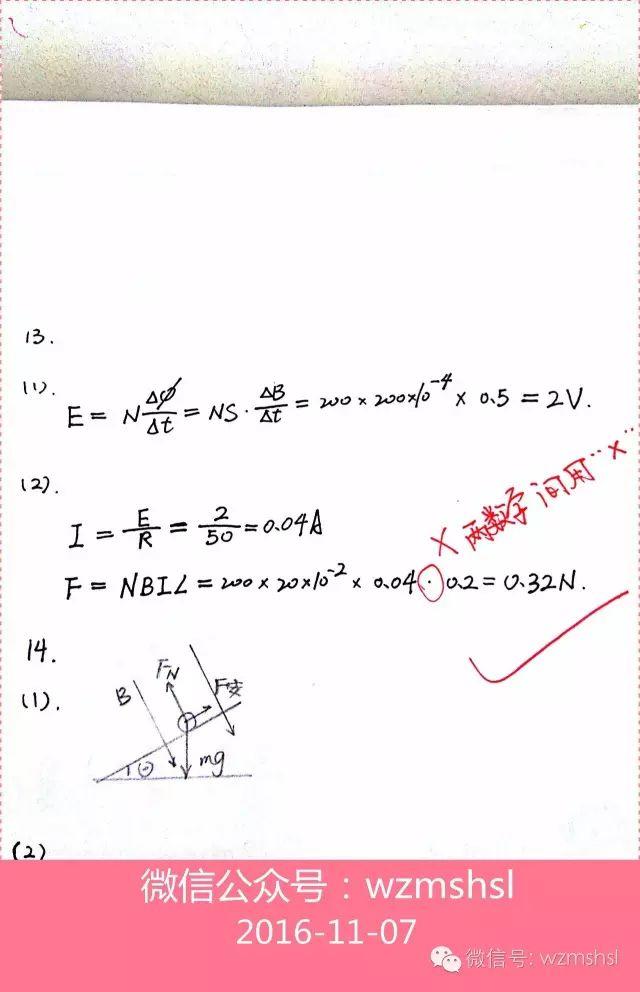 13.
(1).
E = N ΔΦ/Δt = NS · ΔB/Δt = 200 × 200×10⁻⁴ × 0.5 = 2V.
(2).
I = E/R = 2/50 = 0.04A
× 两数字间用"×"
F = NBIL = 200 × 20×10⁻² × 0.04 · 0.2 = 0.32N.
14.
(1).
F_N
F安
B
θ
mg
(2)
微信公众号：wzmshsl
2016-11-07
微信号: wzmshsl